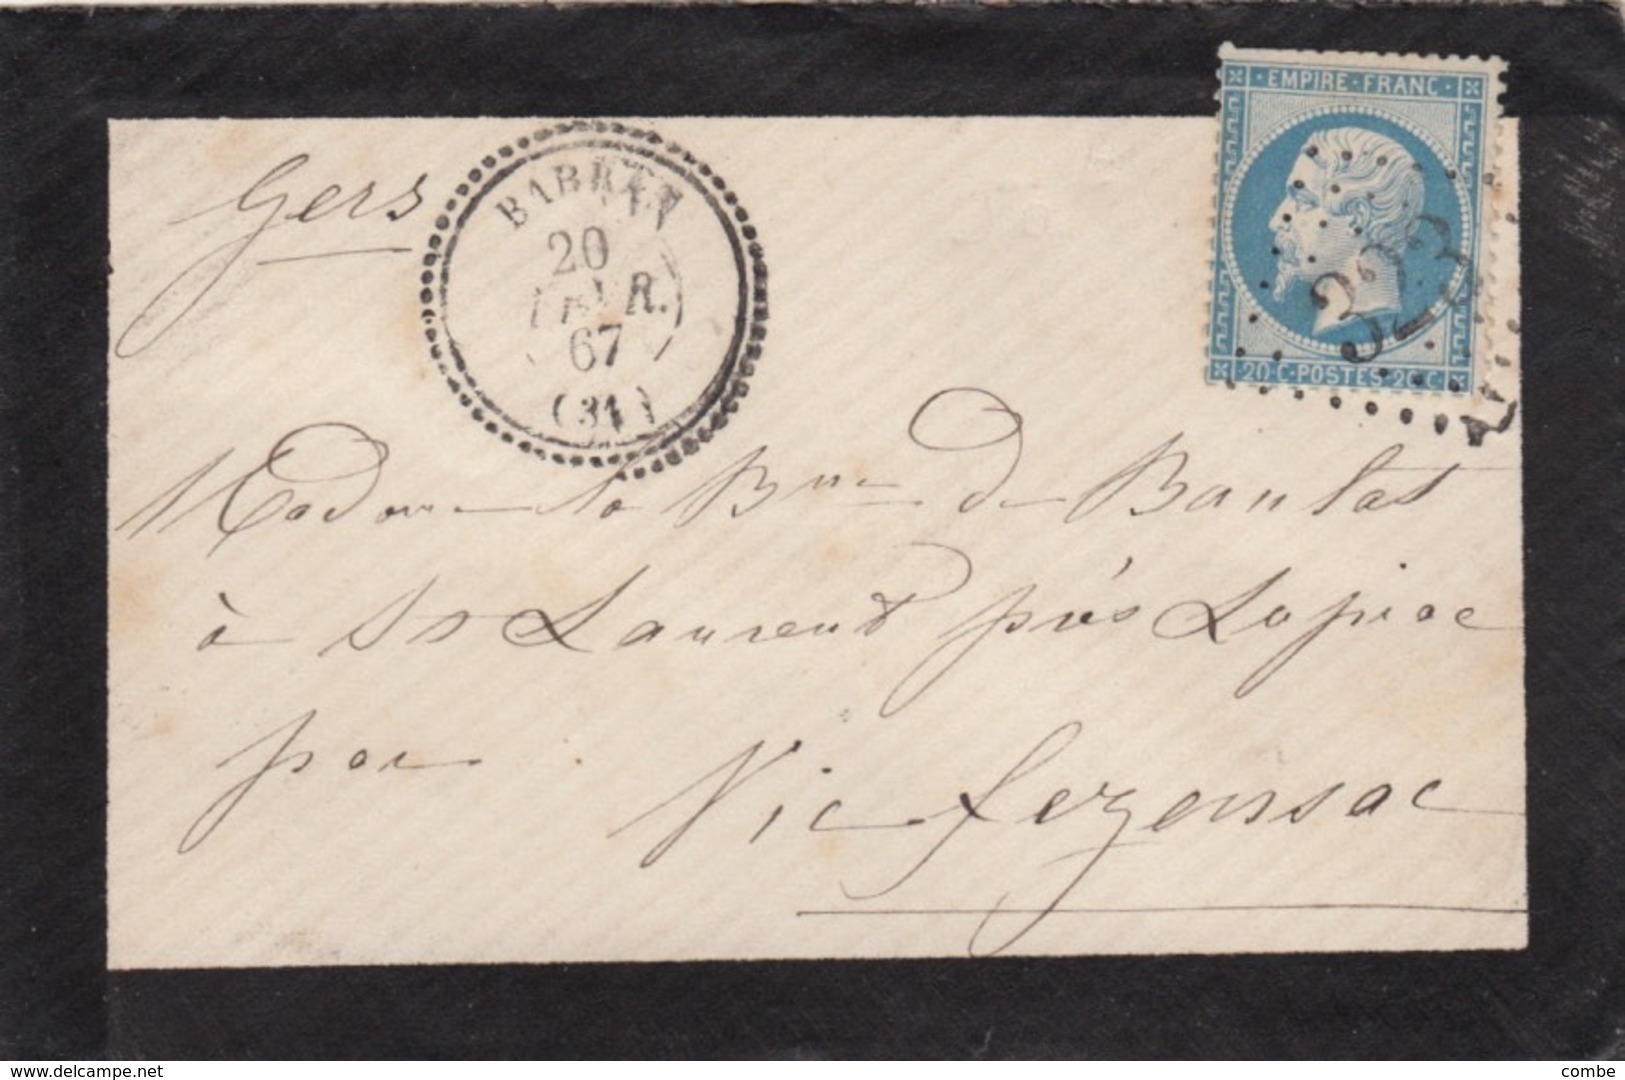 EMPIRE·FRANC
Gers
BARRAN
20
67
(31)
323
20·C·POSTES·20·C
Madame la Bnne de Bautas
à St Laurent près Lupiac
par
Vic Fezensac
www.delcampe.net
combe